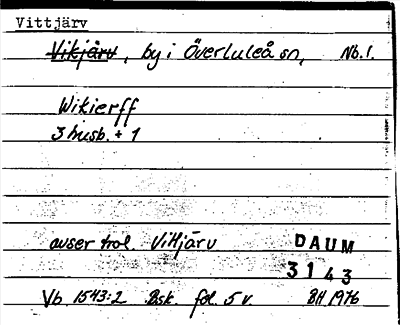 Vittjärv
Vikjärv, by i Överluleå sn, Nb.1.
Wikierff
3 husb. + 1
avser trol. Vittjärv
DAUM
3143
Vb 1543:2 Bsk. fol. 5 v BH 1976